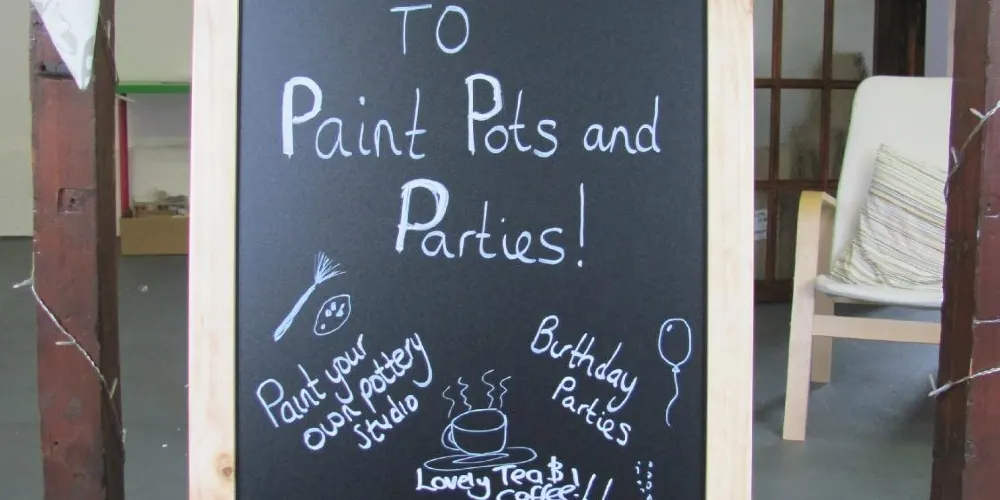 TO
Paint Pots and
Parties!
Paint your
own pottery
studio
Birthday
Parties
Lovely Tea &
Coffee!!